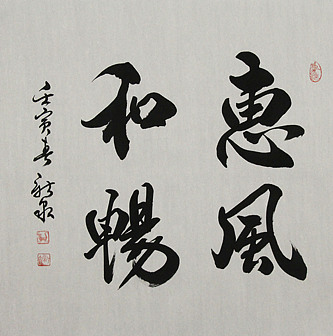 惠風
和暢
壬寅春